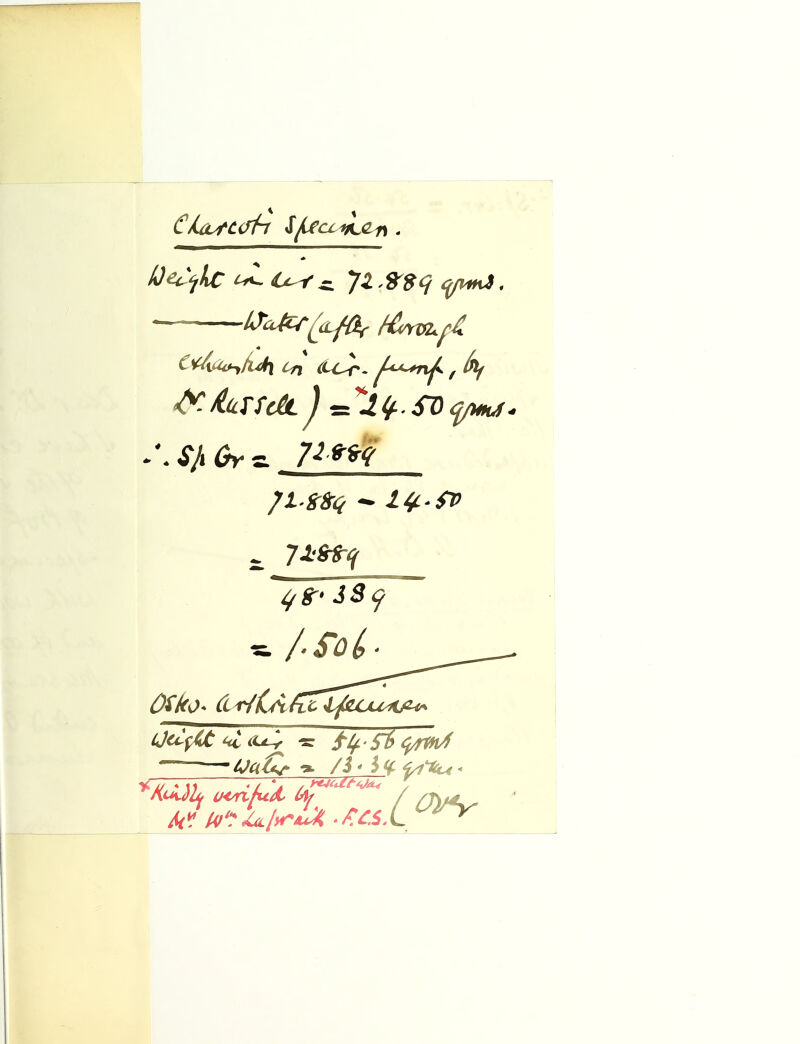 Charcot's Specimen.
Weight in air = 72.889 grms.
——— Water (after thorough
exhaustion in air-pump, by
Dr. Russell) = *24.50 grms.
∴ Sp Gr = 72.889
72.889 - 24.50
= 72.889
48.389
= 1.506.
Osteo-arthritic specimen
Weight in air = 54.56 grms
——— Water = 13.34 grms.
* Kindly verified by
result was
Mr. Wm. Lapraik . F.C.S.
(Over